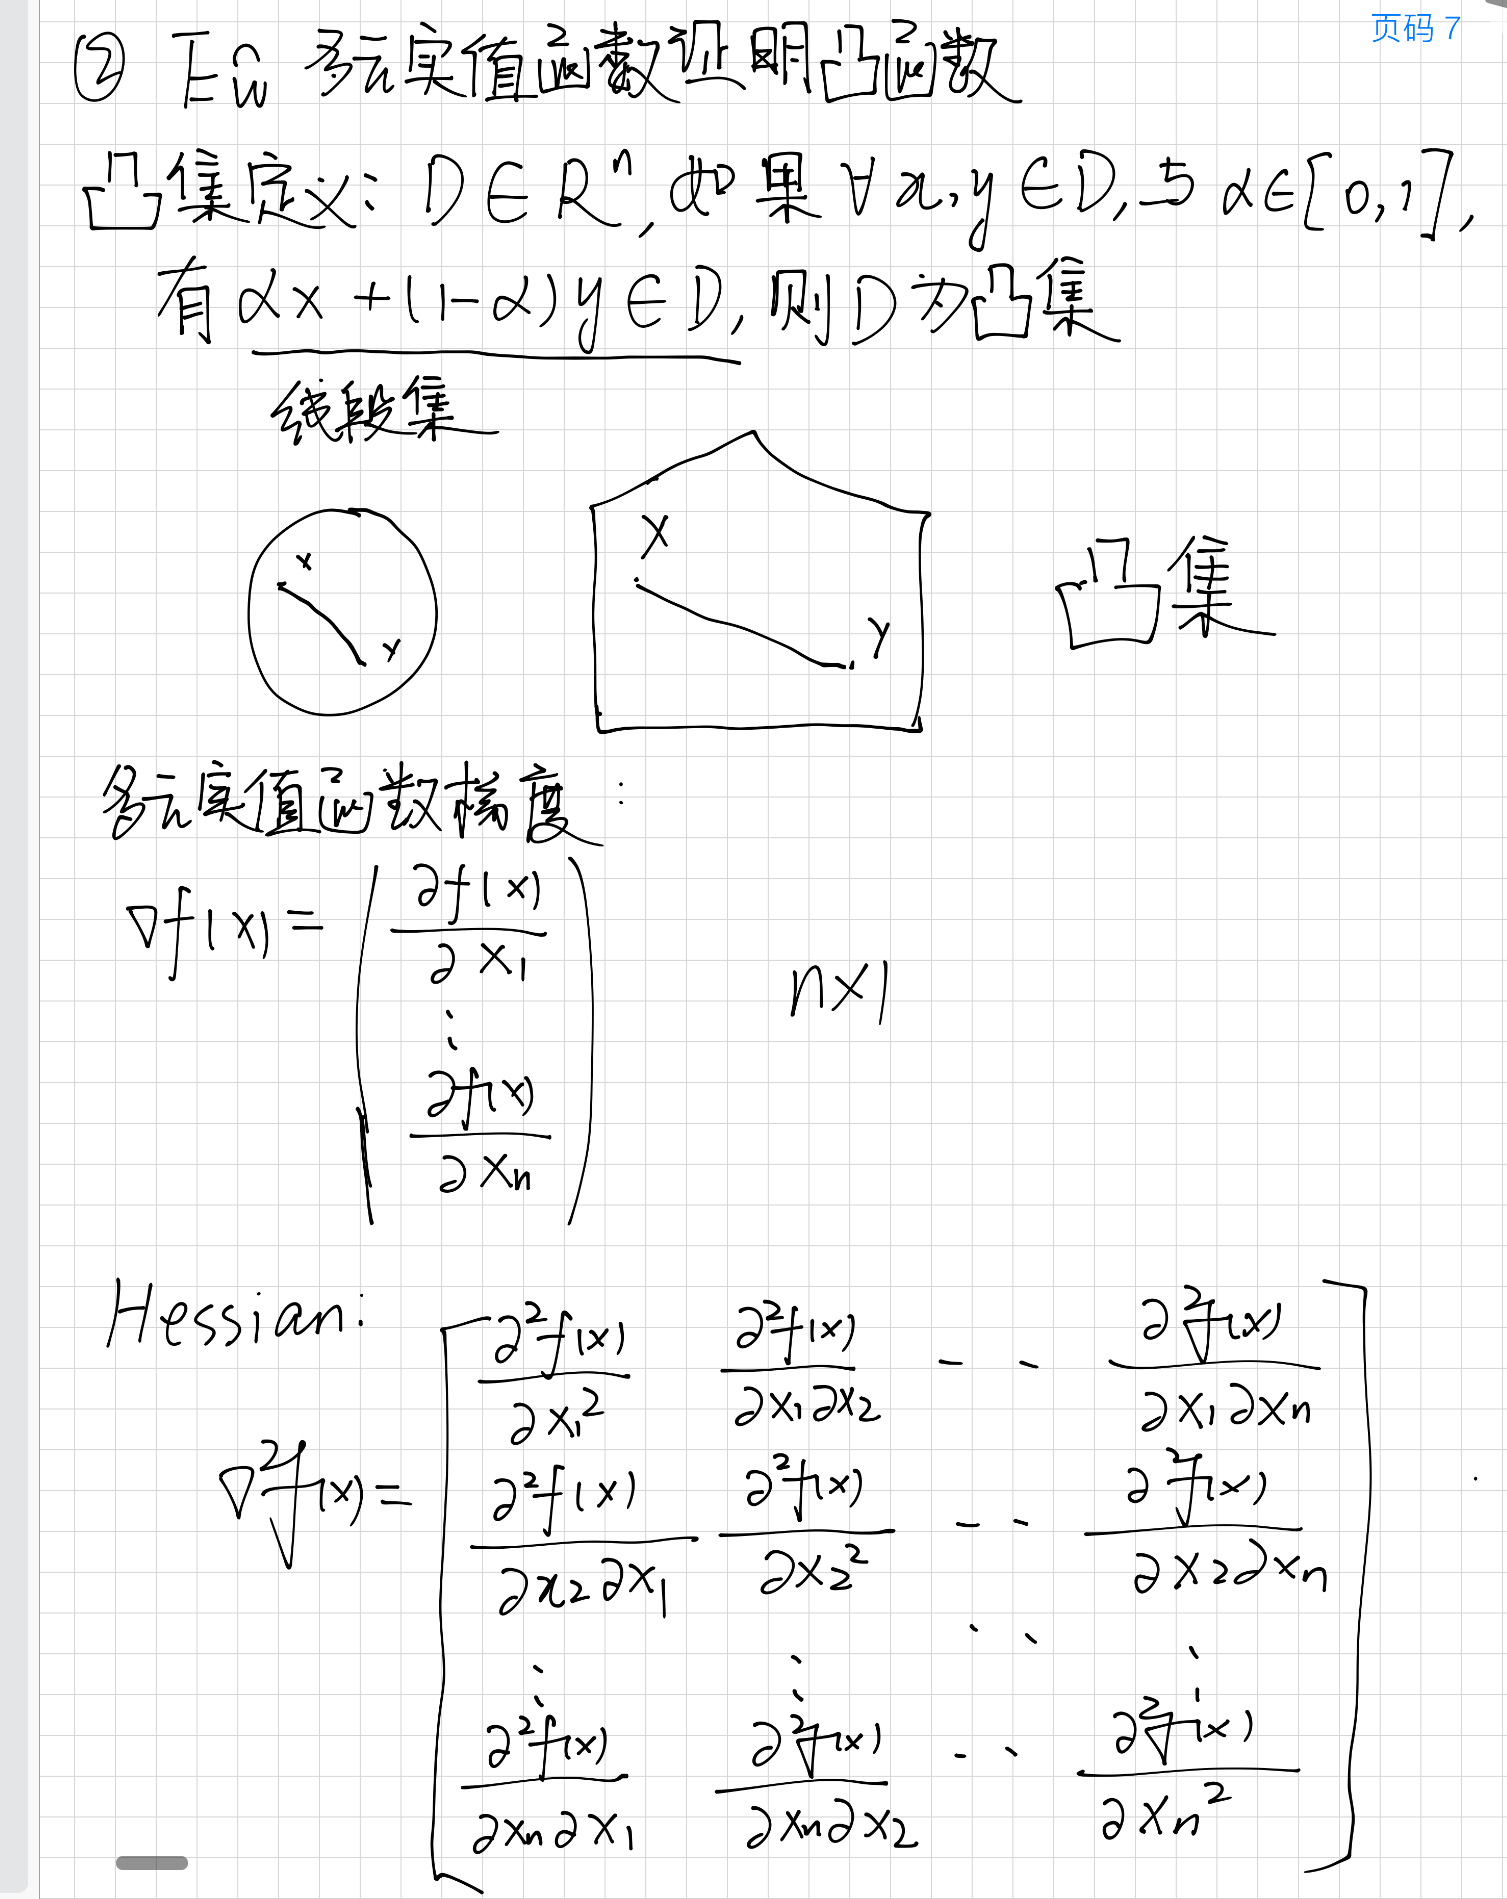 页码 7
② Eŵ 多元实值函数证明凸函数
凸集定义: D∈Rⁿ, 如果 ∀x,y∈D, 与 α∈[0,1],
有 αx+(1-α)y∈D, 则D为凸集
线段集
x
y
X
y
凸集
多元实值函数梯度:
∇f(x)= ( ∂f(x)/∂x₁ ⋮ ∂f(x)/∂xₙ ) n×1
Hessian:
∇²f(x)= [ ∂²f(x)/∂x₁² ∂²f(x)/∂x₁∂x₂ ⋯ ∂²f(x)/∂x₁∂xₙ
∂²f(x)/∂x₂∂x₁ ∂²f(x)/∂x₂² ⋯ ∂²f(x)/∂x₂∂xₙ
⋮ ⋮ ⋱ ⋮
∂²f(x)/∂xₙ∂x₁ ∂²f(x)/∂xₙ∂x₂ ⋯ ∂²f(x)/∂xₙ² ]